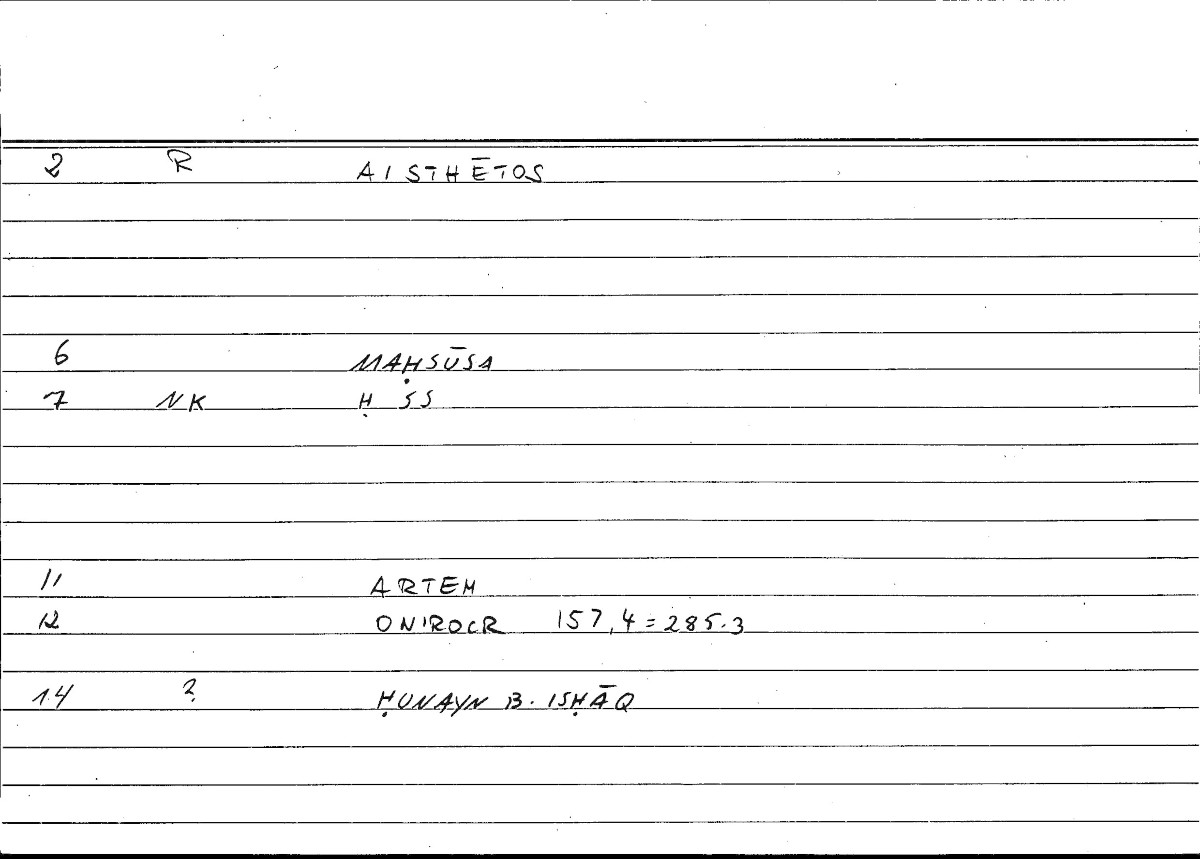 2 R AISTHĒTOS
6 MAḤSŪSA
7 NK Ḥ SS
11 ARTEM
12 ONIROCR 157,4=285.3
14 ? ḤUNAYN B. ISḤĀQ